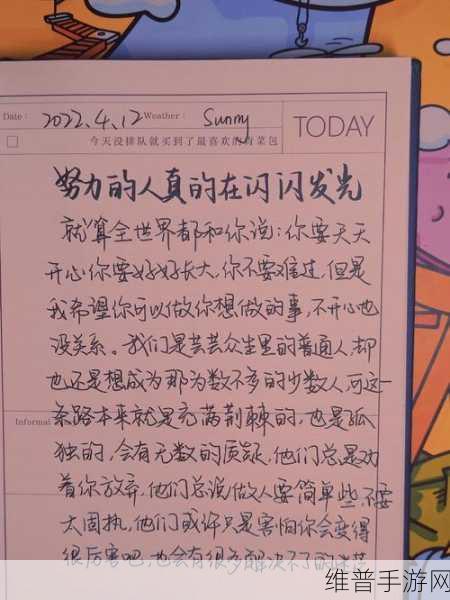 Date: 2022.4.12 Weather: Sunny
TODAY
今天没排队就买到了最喜欢的青菜包
努力的人真的在闪闪发光
就算全世界都和你说:你要天天
开心你要好好长大,你不要难过,但是
我希望你可以做你想做的事,不开心也
没关系。我们是芸芸众生里的普通人,却
也还是想成为那为数不多的少数人,可这
条路本来就是充满荆棘的,也是孤
Informal
独的,会有无数的质疑,他们总是劝
着你放弃,他们总说做人要简单些,不要
太固执,他们或许只是害怕你会变得
很厉害吧,也会有很多解决不了的
维普手游网